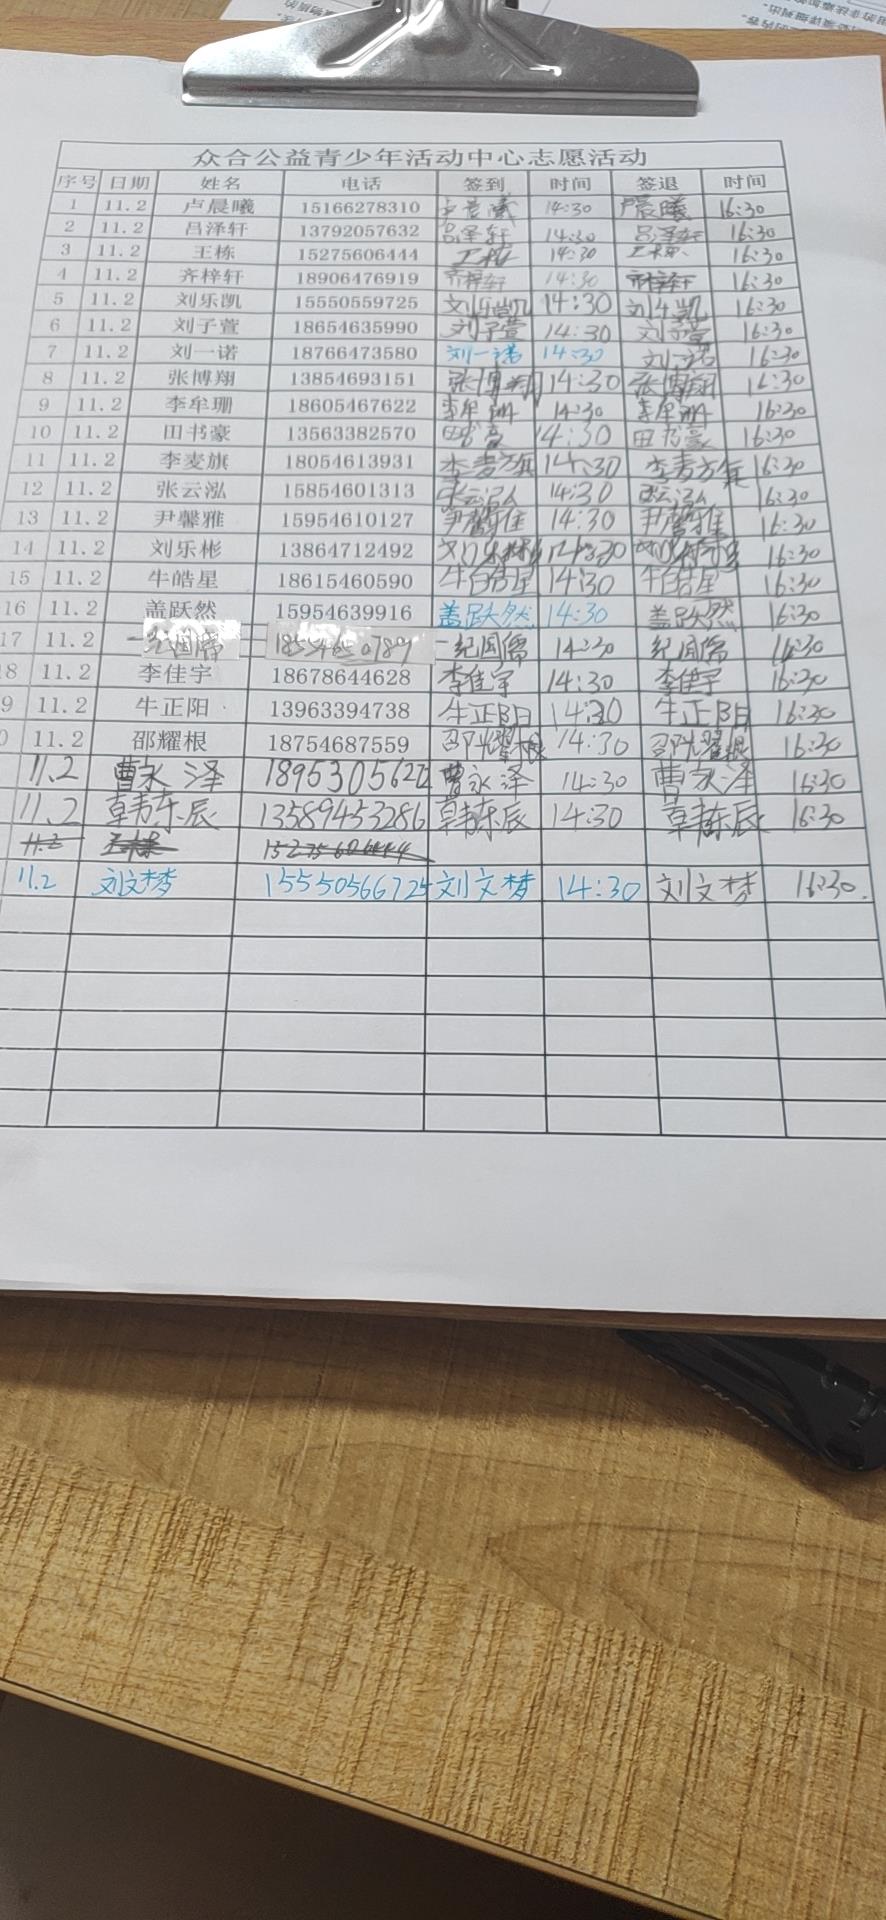 众合公益青少年活动中心志愿活动
序号 日期 姓名 电话 签到 时间 签退 时间
1 11.2 卢晨曦 15166278310 卢晨曦 14:30 卢晨曦 16:30
2 11.2 吕泽轩 13792057632 吕泽轩 14:30 吕泽轩 16:30
3 11.2 王栋 15275606444 王栋 14:30 王栋 16:30
4 11.2 齐梓轩 18906476919 齐梓轩 14:30 齐梓轩 16:30
5 11.2 刘乐凯 15550559725 刘乐凯 14:30 刘乐凯 16:30
6 11.2 刘子萱 18654635990 刘子萱 14:30 刘子萱 16:30
7 11.2 刘一诺 18766473580 刘一诺 14:30 刘一诺 16:30
8 11.2 张博翔 13854693151 张博翔 14:30 张博翔 16:30
9 11.2 李牟珊 18605467622 李牟珊 14:30 李牟珊 16:30
10 11.2 田书豪 13563382570 田书豪 14:30 田书豪 16:30
11 11.2 李麦旗 18054613931 李麦旗 14:30 李麦旗 16:30
12 11.2 张云泓 15854601313 张云泓 14:30 张云泓 16:30
13 11.2 尹馨雅 15954610127 尹馨雅 14:30 尹馨雅 16:30
14 11.2 刘乐彬 13864712492 刘乐彬 14:30 16:30
15 11.2 牛皓星 18615460590 牛皓星 14:30 牛皓星 16:30
16 11.2 盖跃然 15954639916 盖跃然 14:30 盖跃然 16:30
17 11.2 纪闰儒 18554650789 纪闰儒 14:30 纪闰儒 16:30
8 11.2 李佳宇 18678644628 李佳宇 14:30 李佳宇 16:30
9 11.2 牛正阳 13963394738 牛正阳 14:30 牛正阳 16:30
0 11.2 邵耀根 18754687559 邵耀根 14:30 邵耀根 16:30
11.2 曹永泽 曹永泽 14:30 曹永泽 16:30
11.2 韩东辰 13589453286 韩东辰 14:30 韩东辰 16:30
11.2 王栋 15275606444
11.2 刘文梦 15550566725 刘文梦 14:30 刘文梦 16:30.